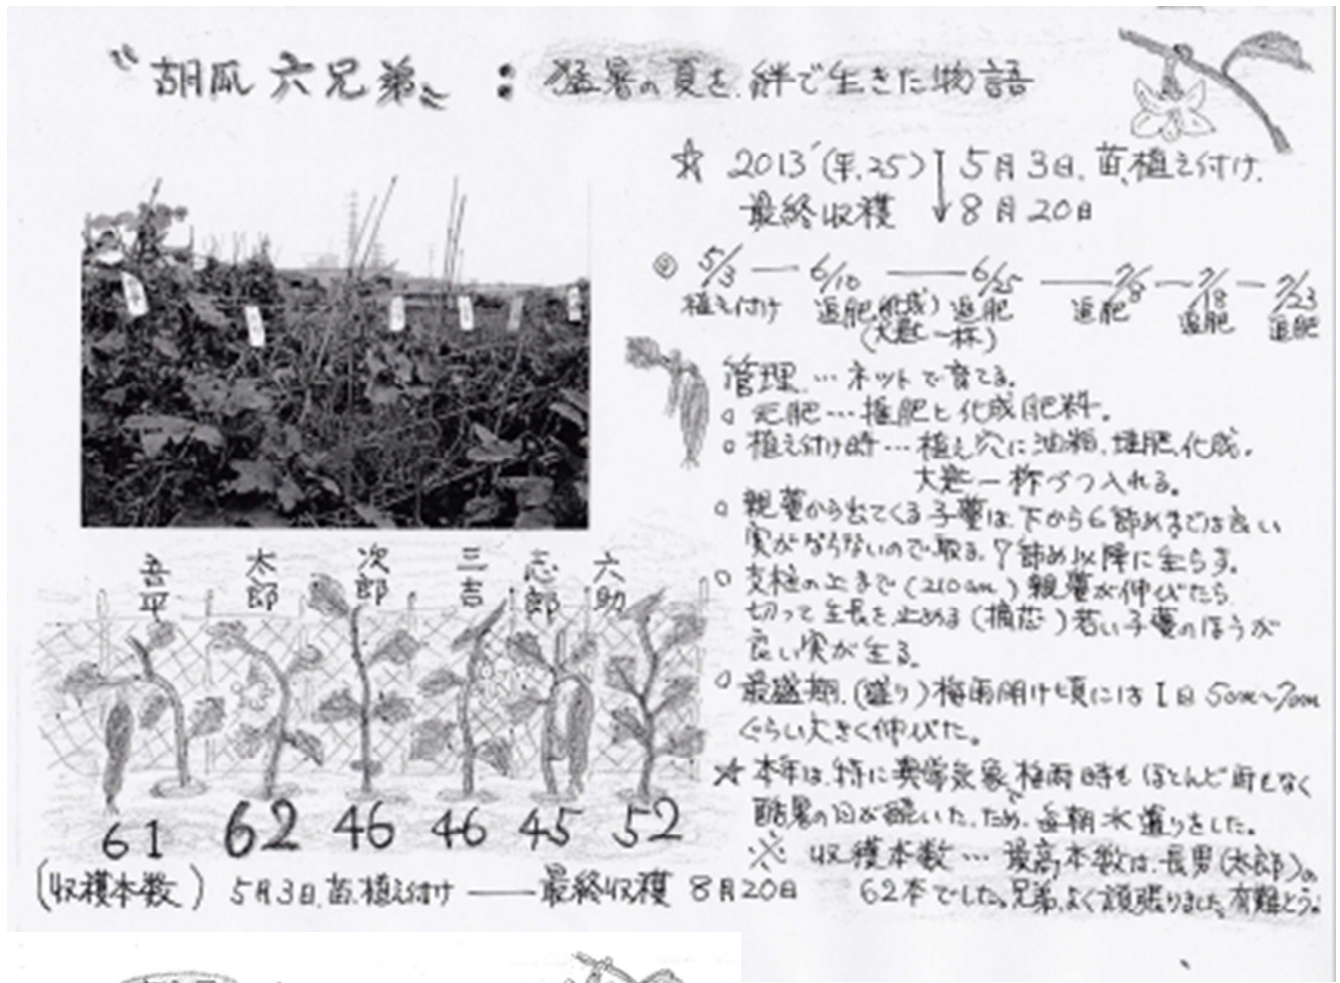 〝胡瓜 六兄弟〟：猛暑の夏を、絆で生きた物語
☆ 2013´(平.25) 5月3日、苗、植え付け、
最終収穫 8月20日
5/3 — 6/10 — 6/25 — 7/8 — 7/18 — 7/23
植え付け 追肥(化成) 追肥 追肥 追肥 追肥
(大匙一杯)
管理…ネットで育てる。
○ 元肥…堆肥と化成肥料。
○ 植え付け時…植え穴に油粕、堆肥、化成。
大匙一杯づつ入れる。
○ 親蔓から出てくる子蔓は、下から6節めまでは良い
実がならないので取る。7節め以降に生らす。
○ 支柱の上まで(210cm)親蔓が伸びたら
切って生長を止める(摘芯)若い子蔓のほうが
良い実が生る。
○ 最盛期、(盛り)梅雨明け頃には1日5cm〜7cm
ぐらい大きく伸びた。
☆ 本年は、特に異常気象、梅雨時も ほとんど雨もなく
酷暑の日が続いた、ため、毎朝水遣りをした。
※ 収穫本数…最高本数は、長男(太郎)の
62本でした。兄弟、よく頑張りました、有難とう。
吾平 太郎 次郎 三吉 志郎 六助
61 62 46 46 45 52
(収穫本数) 5月3日、苗、植え付け — 最終収穫 8月20日